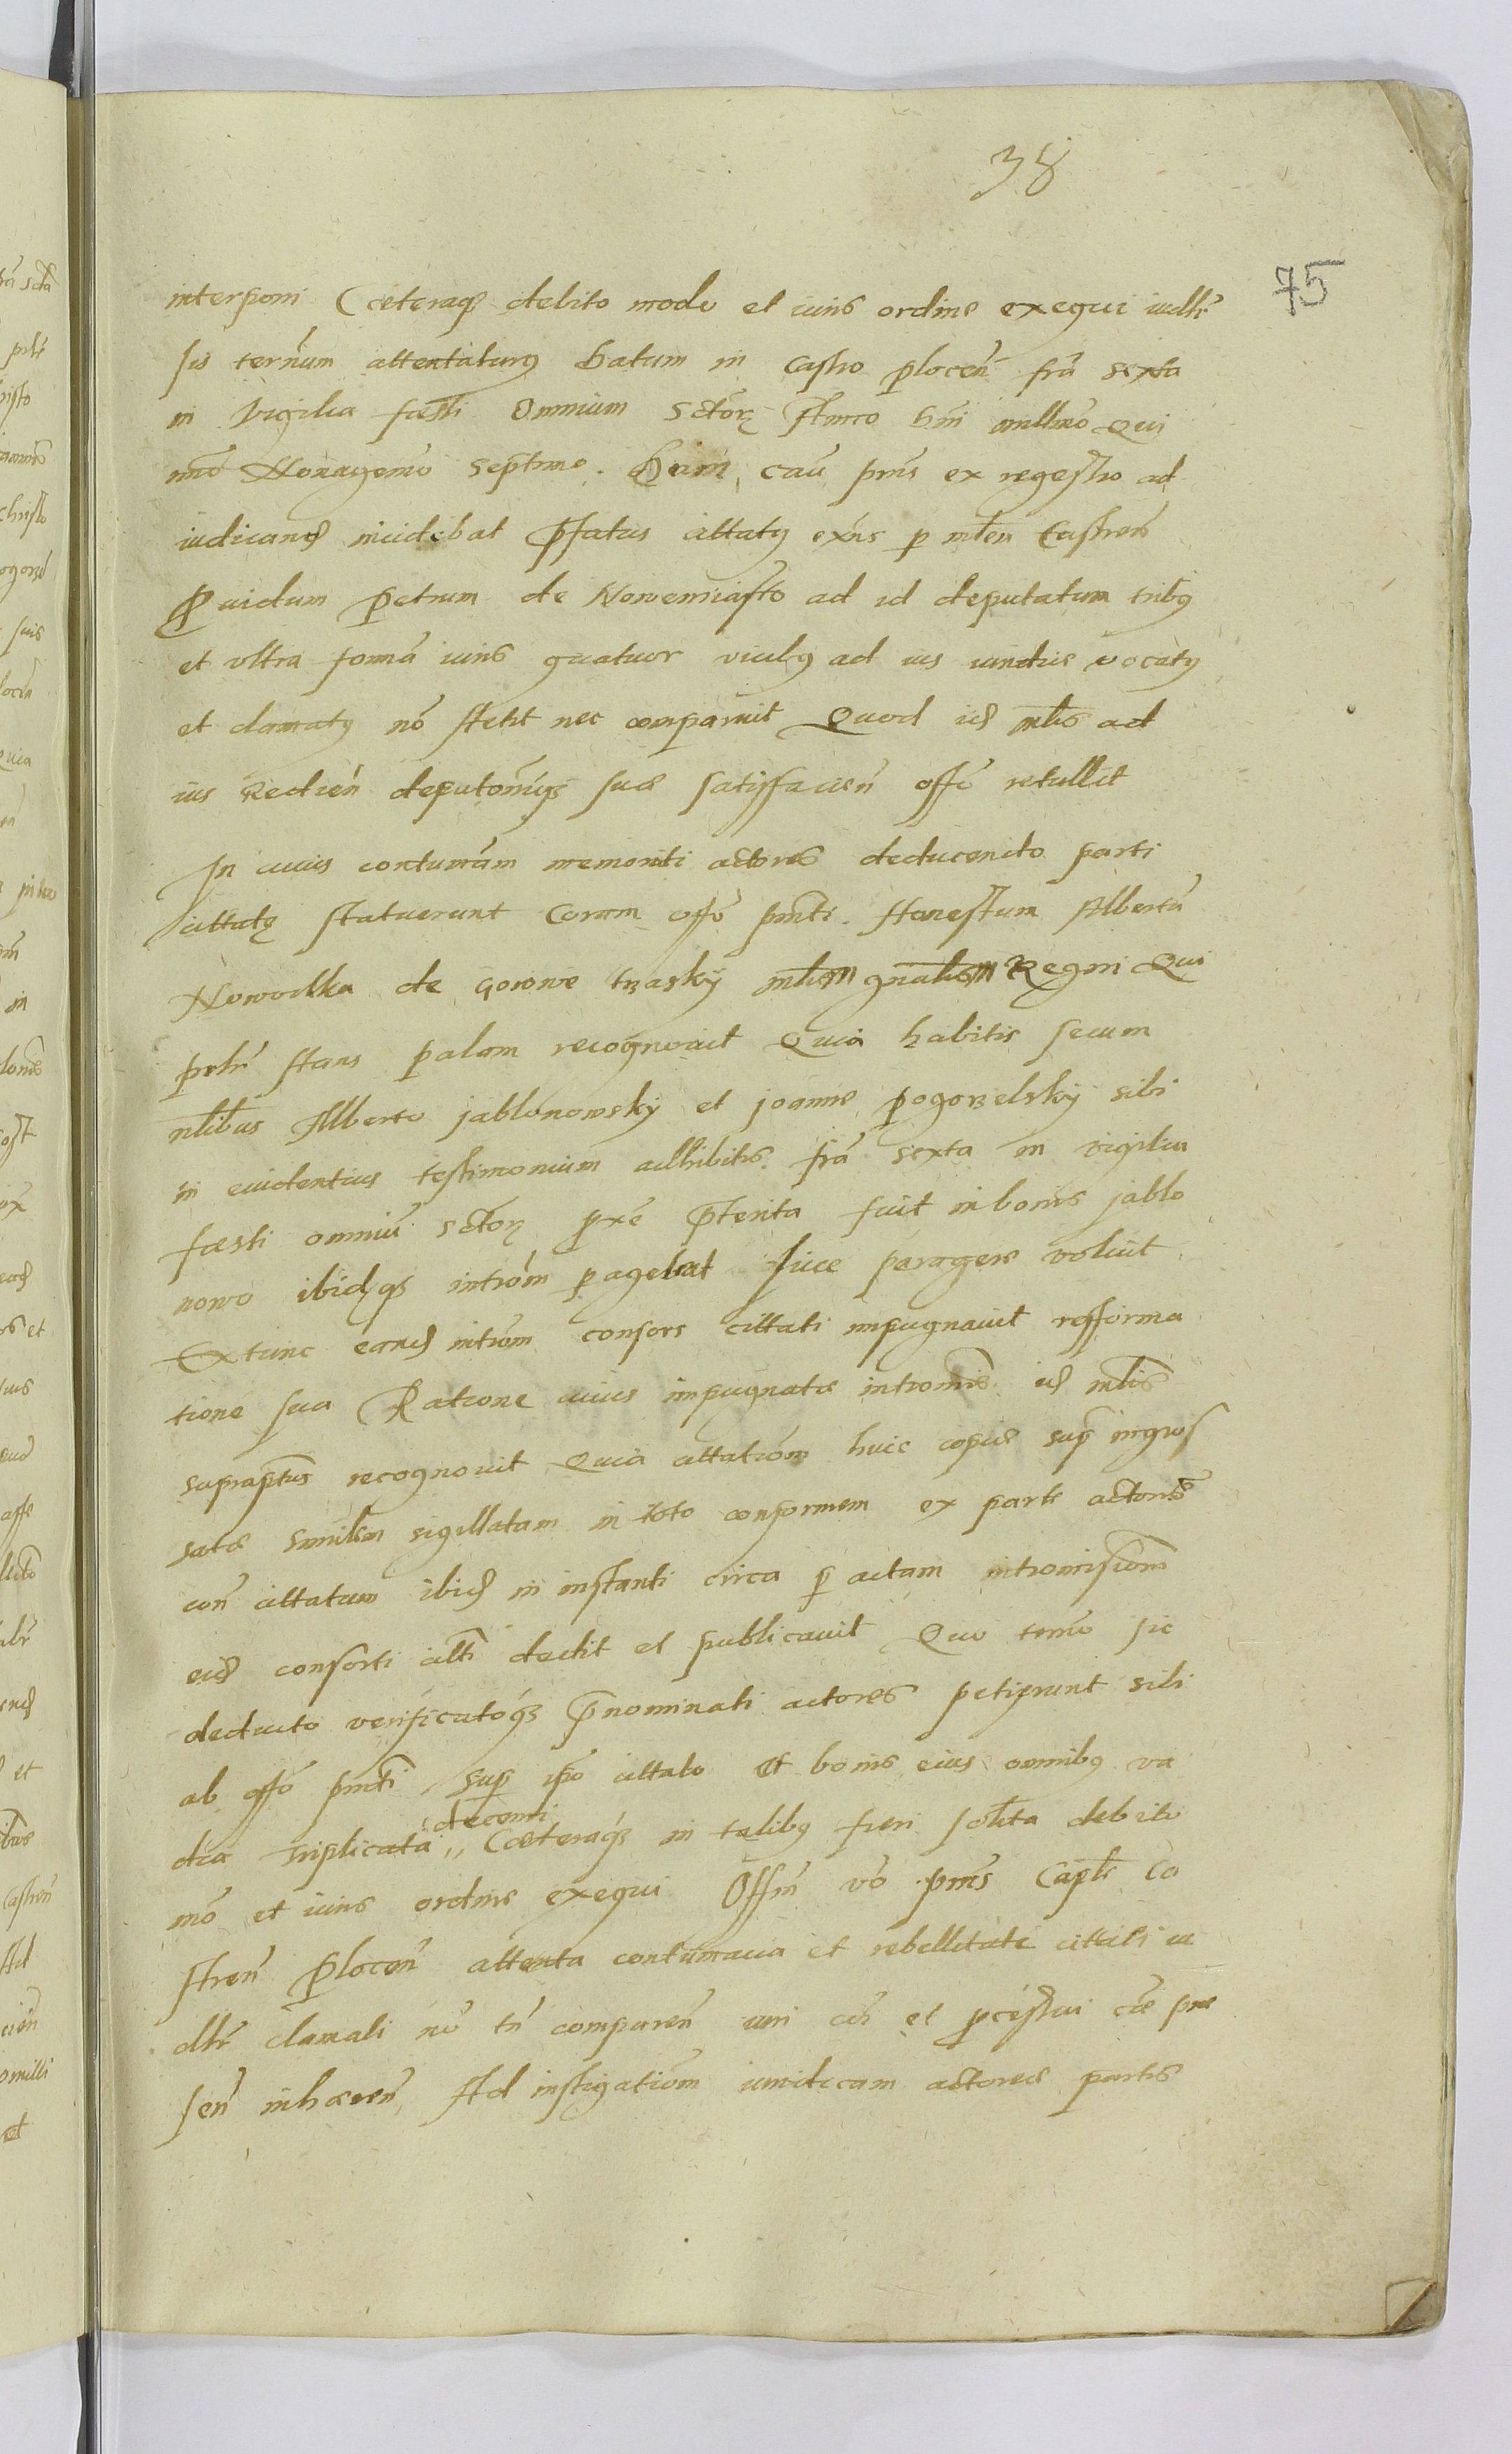 38
75
interponi Ceteraq debito modo et iuris ordine exequi iudlr
sis ternum attentaturus Datum in Castro plocen fria sexta
in Vigilia fæsti Omnium Sctor Anno Dni millmo Qui
mo Nonagemo septimo. Dum cau pns ex regestro ad
iudicand incidebat Pfatus cittatus exns p mlem Castren
Prouidum Petrum de Nowemiasto ad id deputatum tribus
et vltra forma iuris quatuor vicibus ad ius iuridice vocatus
et clamatus no stetit nec comparuit Quod id mlis ad
ius Redien deputoniq suæ satisfacien offo retullit
In cuius contumam memorati actores deducendo parti
cittatæ statuerunt Coram offo pnti Honestum Alberta
Nowodka de Gorowe trasky mlem gnalem Regni Qui
psonlr stans palam recognouit Quia habitis secum
nlibus Alberto Jablonowsky et Joanne Pogorzelsky sibi
in euidentius testimonium adhibitis fria sexta in vigilia
fæsti omniu sctor pxe pterita fuit in bonis Jablo
nowo ibidq introm pagebat siue peragere voluit
Extunc eand introm consors cittati impugnauit refforma
tione sua Ratione cuius impugnatæ intromis id mlis
supraptus recognouit Quia cittatiom huic copiæ sup ingros
satæ similem sigillatam in toto conformem ex parte actores
con cittatum ibid in instanti circa p actam intromisiom
eid consorti citti dedit et publicauit Quo termo sic
deducto verificatoq pnominati actores petierunt sibi
ab offo pnti sup ipo cittato et bonis eius omnibus va
dia triplicata decerni Cæteraq in talibus fieri solita debito
mo et iuris ordine exequi Offm vo pns Capitle Ca
stren Plocen attenta contumacia et rebellitate cittati iu
dlr clamati no tn comparen iuri coi et pcessui cæ præ
sen inhæren Ad instigatiom iuridicam actoreæ partis